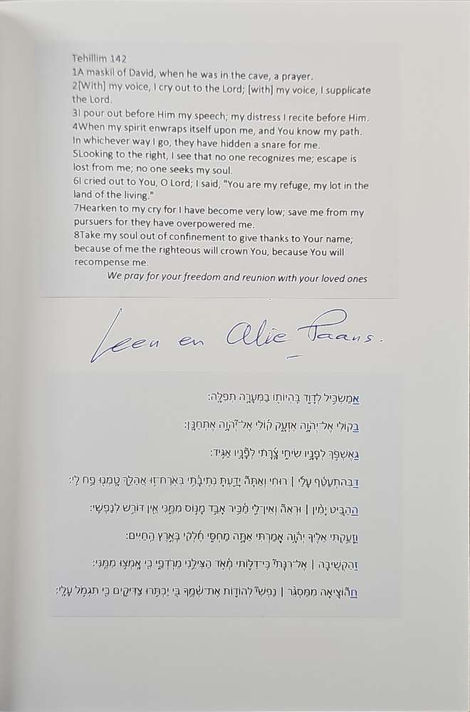 Tehillim 142
1A maskil of David, when he was in the cave, a prayer.
2[With] my voice, I cry out to the Lord; [with] my voice, I supplicate
the Lord.
3I pour out before Him my speech; my distress I recite before Him.
4When my spirit enwraps itself upon me, and You know my path.
In whichever way I go, they have hidden a snare for me.
5Looking to the right, I see that no one recognizes me; escape is
lost from me; no one seeks my soul.
6I cried out to You, O Lord; I said, "You are my refuge, my lot in the
land of the living."
7Hearken to my cry for I have become very low; save me from my
pursuers for they have overpowered me.
8Take my soul out of confinement to give thanks to Your name;
because of me the righteous will crown You, because You will
recompense me.
We pray for your freedom and reunion with your loved ones
Leen en Alie Paans.
אמַשְׂכִּ֥יל לְדָוִ֑ד בִּֽהְיוֹת֖וֹ בַמְּעָרָ֣ה תְפִלָּֽה:
בקוֹלִי אֶל־יְהֹוָ֣ה אֶזְעָ֑ק ק֜וֹלִ֗י אֶל־יְהֹוָ֥ה אֶתְחַנָּֽן:
גאֶשְׁפֹּ֣ךְ לְפָנָ֣יו שִׂיחִ֑י צָֽ֜רָתִ֗י לְפָנָ֥יו אַגִּֽיד:
דבְּהִתְעַטֵּ֬ף עָלַ֨י | רוּחִ֗י וְאַתָּה֘ יָדַ֪עְתָּ נְתִיבָ֫תִ֥י בְּאֹֽרַח־ז֥וּ אֲהַלֵּ֑ךְ טָֽמְנ֖וּ פַ֣ח לִֽי:
ההַבֵּ֤יט יָמִ֨ין | וּרְאֵה֘ וְאֵֽין־לִ֪י מַ֫כִּ֥יר אָבַ֣ד מָנ֣וֹס מִמֶּ֑נִּי אֵ֖ין דּוֹרֵ֣שׁ לְנַפְשִֽׁי:
וזָעַ֥קְתִּי אֵלֶ֗יךָ יְה֫וָ֥ה אָמַרְתִּי אַתָּ֣ה מַחְסִ֑י חֶ֜לְקִ֗י בְּאֶ֣רֶץ הַֽחַיִּֽים:
זהַקְשִׁ֤יבָה | אֶֽל־רִנָּתִי֘ כִּֽי־דַלּ֪וֹתִ֫י מְאֹ֥ד הַצִּילֵ֥נִי מֵרֹֽדְפַ֑י כִּ֖י אָֽמְצ֣וּ מִמֶּֽנִּי:
חה֘וֹצִ֤יאָה מִמַּסְגֵּ֨ר | נַפְשִׁי֘ לְהוֹד֪וֹת אֶת־שְׁ֫מֶ֥ךָ בִּ֖י יַכְתִּ֣רוּ צַדִּיקִ֑ים כִּ֖י תִגְמֹ֣ל עָלָֽי: